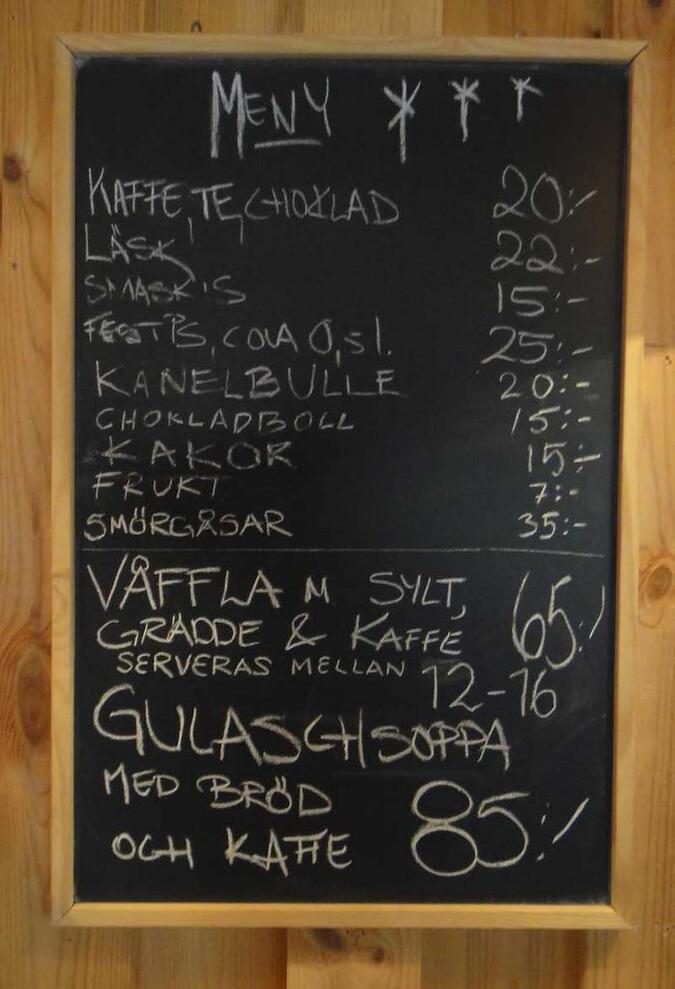 MENY
KAFFE, TE, CHOKLAD 20:-
LÄSK 22:-
SMASK'S 15:-
FESTIS, COLA 0,5 l. 25:-
KANELBULLE 20:-
CHOKLADBOLL 15:-
KAKOR 15:-
FRUKT 7:-
SMÖRGÅSAR 35:-
VÅFFLA M SYLT, 65:-
GRÄDDE & KAFFE
SERVERAS MELLAN 12-16
GULASCHSOPPA
MED BRÖD
OCH KAFFE 85:-